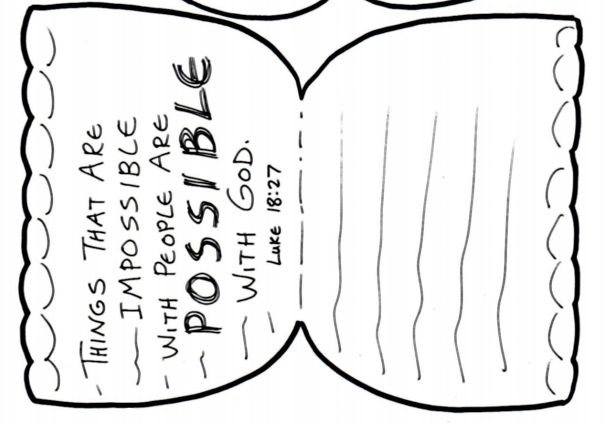 THINGS THAT ARE
IMPOSSIBLE
WITH PEOPLE ARE
POSSIBLE
WITH GOD.
Luke 18:27